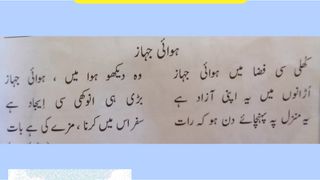 ہوائی جہاز
کھلی سی فضا میں ہوائی جہاز وہ دیکھو ہوا میں ، ہوائی جہاز
اڑانوں میں یہ اپنی آزاد ہے بڑی ہی انوکھی سی ایجاد ہے
یہ منزل پہ پہنچائے دن ہو کہ رات سفر اس میں کرنا ، مزے کی ہے بات